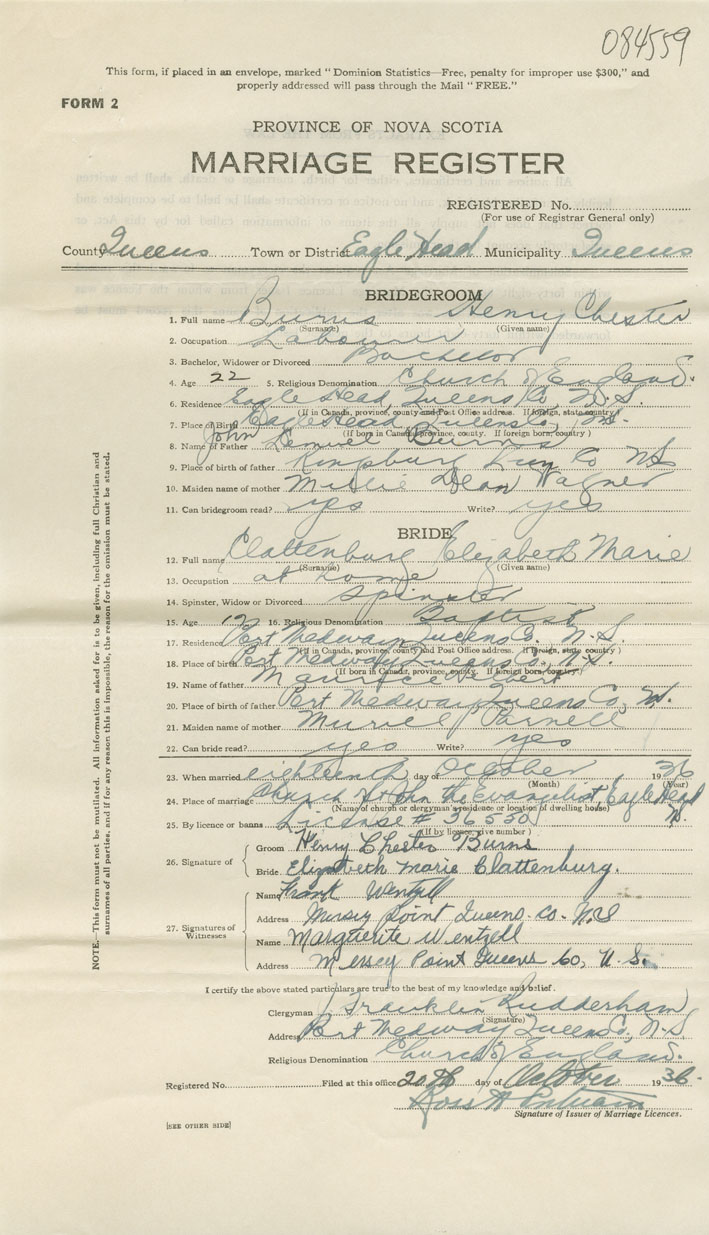 084559
This form, if placed in an envelope, marked "Dominion Statistics—Free, penalty for improper use $300," and
properly addressed will pass through the Mail "FREE."
FORM 2
PROVINCE OF NOVA SCOTIA
MARRIAGE REGISTER
REGISTERED No.
(For use of Registrar General only)
County Queens Town or District Eagle Head Municipality Queens
BRIDEGROOM
1. Full name Burns Henry Chester
(Surname) (Given name)
2. Occupation Labourer
3. Bachelor, Widower or Divorced Bachelor
4. Age 22 5. Religious Denomination Church of England.
6. Residence Eagle Head, Queens Co. N.S.
(If in Canada, province, county and Post Office address. If foreign, state country)
7. Place of Birth Eagle Head, Queens Co, N.S.
(If born in Canada, province, county. If foreign born, country)
8. Name of Father John Lemuel Burns
9. Place of birth of father Kingsburg Lun Co NS
10. Maiden name of mother Millie Dean Wagner
11. Can bridegroom read? yes Write? yes
BRIDE
12. Full name Clattenburg Elizabeth Marie
(Surname) (Given name)
13. Occupation at home
14. Spinster, Widow or Divorced Spinster
15. Age 16. Religious Denomination Baptist
17. Residence Port Medway, Queens Co. N.S.
(If in Canada, province, county and Post Office address. If foreign, state country)
18. Place of birth Port Medway, Queens Co., N.S.
(If born in Canada, province, county. If foreign born, country)
19. Name of father Maurice
20. Place of birth of father Port Medway Queens Co, N.S.
21. Maiden name of mother Muriel Parnell
22. Can bride read? yes Write? yes
23. When married eighteenth day of October 1936
(Month) (Year)
24. Place of marriage Church St John the Evangelist, Eagle Head
(Name of church or clergyman's residence or location of dwelling house)
N.S.
25. By licence or banns License # 36550
(If by licence, give number)
26. Signature of
Groom Henry Chester Burns
Bride Elizabeth Marie Clattenburg.
27. Signatures of Witnesses
Name Frank Wentzell
Address Mersey Point Queens. Co. N.S
Name Marguerite Wentzell
Address Mersey Point Queens Co, N.S.
I certify the above stated particulars are true to the best of my knowledge and belief.
Clergyman Franklin Rudderham
(Signature)
Address Port Medway, Queens Co., N.S
Religious Denomination Church of England.
Registered No. Filed at this office 20th day of October 1936.
Signature of Issuer of Marriage Licences.
[SEE OTHER SIDE]
NOTE.—This form must not be mutilated. All information asked for is to be given, including full Christian and
surnames of all parties, and if for any reason this is impossible, the reason for the omission must be stated.